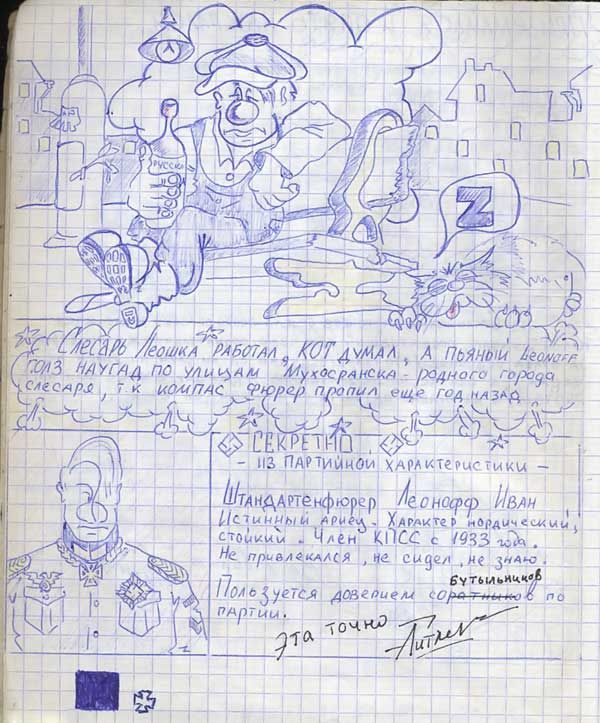 РУССК
Z
СЛЕСАРЬ ЛЕОШКА РАБОТАЛ, КОТ ДУМАЛ, А ПЬЯНЫЙ LEONOFF
ПОЛЗ НАУГАД ПО УЛИЦАМ МУХОСРАНСКА - РОДНОГО ГОРОДА
СЛЕСАРЯ, Т.К КОМПАС ФЮРЕР ПРОПИЛ ЕЩЕ ГОД НАЗАД.
СЕКРЕТНО
- ИЗ ПАРТИЙНОЙ ХАРАКТЕРИСТИКИ -
ШТАНДАРТЕНФЮРЕР ЛЕОНОФФ ИВАН,
ИСТИННЫЙ АРИЕЦ. ХАРАКТЕР НОРДИЧЕСКИЙ,
СТОЙКИЙ. ЧЛЕН КПСС С 1933 ГОДА.
НЕ ПРИВЛЕКАЛСЯ, НЕ СИДЕЛ, НЕ ЗНАЮ.
БУТЫЛЬНИКОВ
ПОЛЬЗУЕТСЯ ДОВЕРИЕМ СОРАТНИКОВ ПО
ПАРТИИ.
Эта точно